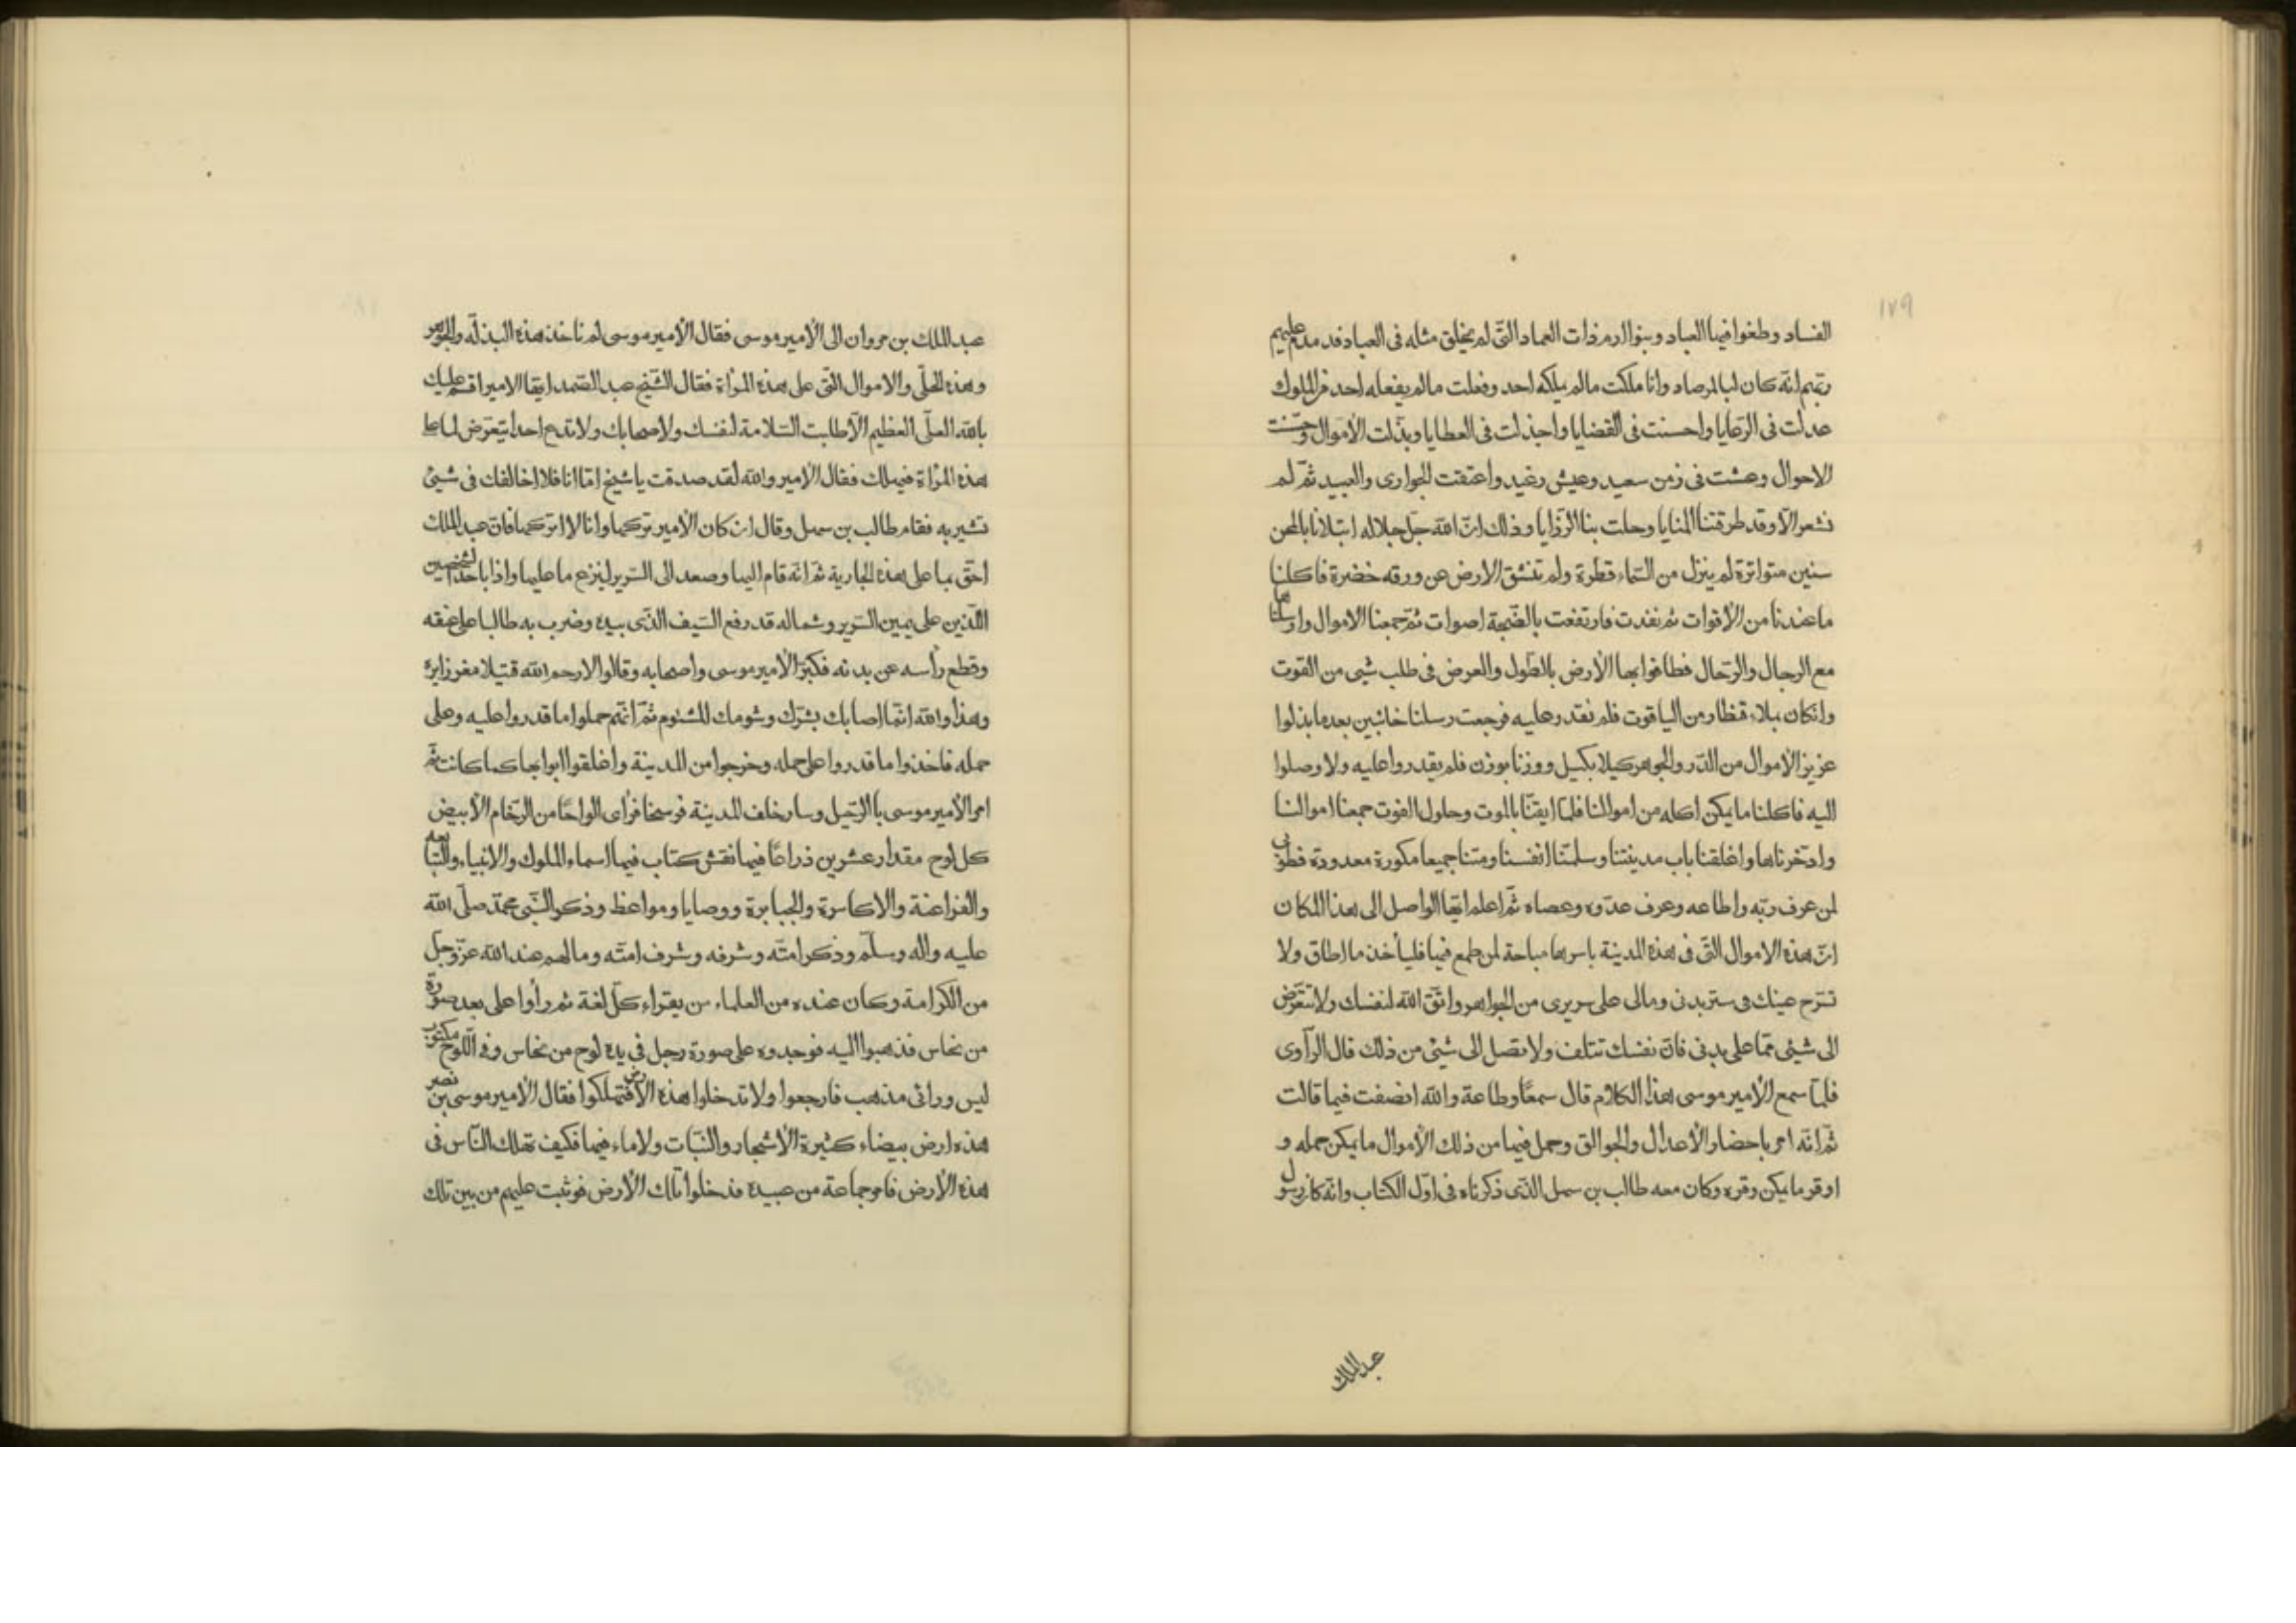 ١٧٩
الفساد وطغوا فيها العباد وبنوا ارم ذات العماد الّتى لم يخلق مثله فى العباد فدمدم عليهم
ربّهم انّه كان لبالمرصاد وانا ملكت مالم يملكه احد وفعلت مالم يفعله احد من الملوك
عدلت فى الرّعايا واحسنت فى القضايا واجذلت فى العطايا وبذّلت الأموال وحسّنت
الاحوال وعشت فى زمن سعيد وعيش رغيد واعتقت الجوارى والعبيد ثمّ لم
نشعر الّا وقد طرقتنا المنايا وحلت بنا الرّزايا وذلك انّ اللّه جلّ جلاله ابتلانا بالمحن
سنين متواترة لم ينزل من السّماء قطرة ولم تنشق الارض عن ورقه خضرة فاكلنا
ما عندنا من الأقوات ثم نفدت فارتفعت بالضّجة اصوات ثمّ جمعنا الاموال وارسلناها
مع الرجال والرّحال فطافوا بها الأرض بالطّول والعرض فى طلب شيى من القوت
وان كان بملاء قنطار من الياقوت فلم نقدر عليه فرجعت رسلنا خائبين بعد ما بذلوا
عزيز الأموال من الدّر والجوهر كيلا بكيل ووزنا بوزن فلم يقدروا عليه ولا وصلوا
اليه فاكلنا ما يمكن اكله من اموالنا فلمّا ايقنّا بالموت وحلول الفوت جمعنا اموالنا
وادّخرناها واغلقنا باب مدينتنا وسلمنّا انفسنا ومتنا جميعا مكورة معدودة فطوبى
لمن عرف ربّه واطاعه وعرف عدّوه وعصاه ثمّ اعلم ايّها الواصل الى هذا المكان
انّ هذه الاموال الّتى فى هذه المدينة باسرها مباحة لمن طمع فيها فليأخذ ما اطاق ولا
تسرح عينك فى ستر بدنى ومالى على سريرى من الجواهر واتّق اللّه لنفسك ولا تتعرّض
الى شيئى ممّا على بدنى فانّ نفسك تتلف ولا تصل الى شيئى من ذلك قال الرّاوى
فلمّا سمع الأمير موسى هذا الكلام قال سمعًا وطاعة واللّه انصفت فيما قالت
ثمّ انّه امر باحضار الأعدال والجوالق وحمل فيها من ذلك الأموال ما يمكن حمله و
اوقر ما يمكن وقره وكان معه طالب بن سهل الذّى ذكرناه فى اوّل الكتاب وانّه كان رسول
عبد الملك
عبد الملك بن مروان الى الأمير موسى فقال الأمير موسى لم ناخذ هذه البذلّه والجوهر
وهذه الحلّى والاموال الّتى على هذه المرأة فقال الشّيخ عبد الصّمد ايّها الامير اقسم عليك
باللّه العلّى العظيم الّا طلبت السّلامة لنفسك ولاصحابك ولا تدع احدا يتعرّض لما على
هذه المرأة فيهلك فقال الأمير واللّه لقد صدقت يا شيخ امّا انا فلا اخالفك فى شيئ
تشير به فقام طالب بن سهل وقال ان كان الأمير تركها وانا لا اتركها فانّ عبد الملك
احّق بما على هذه الجارية ثمّ انّه قام اليها وصعد الى السّرير لينزع ما عليها واذا باحد الشخصين
اللّذين على يمين السّرير وشماله قد رفع السّيف الّذى بيده وضرب به طالبا على عنقه
وقطع رأسه عن بدنه فكبّر الأمير موسى واصحابه وقالوا لا رحم اللّه قتيلا مغرزايره
وهذا واللّه انّما اصابك بشرّك وشومك المشئوم ثمّ انّهم حملوا ما قدروا عليه وعلى
حمله فاخذوا ما قدروا على حمله وخرجوا من المدينة واغلقوا ابوابها كما كانت ثمّ
امر الأمير موسى بالرّحيل وسار خلف المدينة فرسخا فرأى الواحًا من الرّخام الأبيض
كل لوح مقدار عشرين ذراعًا فيها نقش كتاب فيها اسماء الملوك والانبياء والتّبابعه
والفراعنة والاكاسرة والجبابرة ووصايا ومواعظ وذكر النّبى محمّد صلّى اللّه
عليه واله وسلّم وذكر امتّه وشرفه وشرف امتّه ومالهم عند اللّه عزّ وجلّ
من الكرامة وكان عنده من العلماء من يقراء كلّ لغة ثم رأوا على بعد صورة
من نحاس فذهبوا اليه فوجدوه على صورة رجل فى يده لوح من نحاس وفى اللّوح مكتوب
ليس ورائى مذهب فارجعوا ولا تدخلوا هذه الأرض فتهلكوا فقال الأمير موسى بن نصير
هذه ارض بيضاء كثيرة الأشجار والنّبات ولا ماء فيها فكيف تهلك النّاس فى
هذه الأرض فامر جماعة من عبيده فدخلوا تلك الأرض فوثبت عليهم من بين تلك